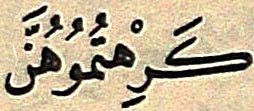 كَرِهْتُمُوُهُنَّ